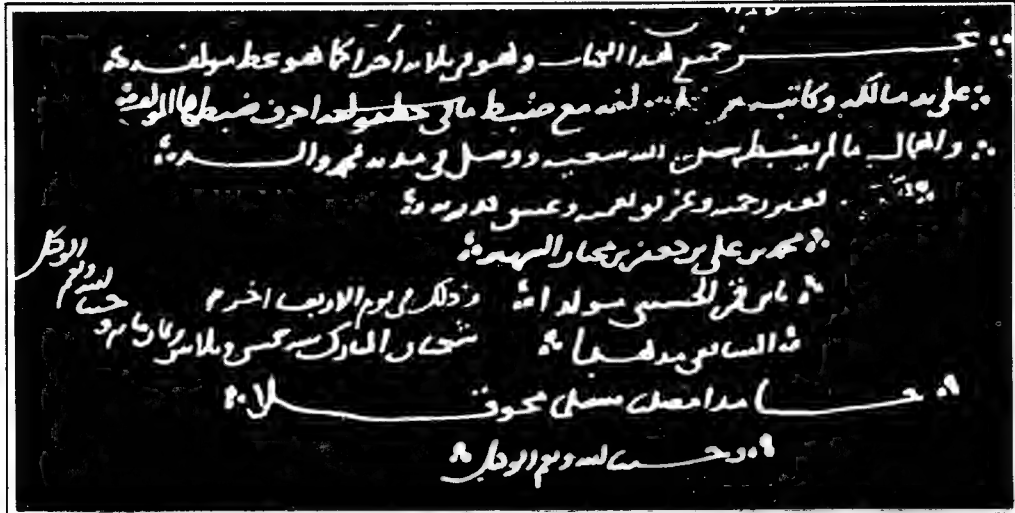 نجز جميع هذا الكتاب وهو في ثلاثة أجزا كما هو بخط مولفه
على يد مالكه وكاتبه من مع ضبط ما في احرف ضبطها المولف
والغالب ما لم يضبط الله سعيه ووصل في
فقير رحمته وغريق نعمه وعتيق قدرته
محمد بن علي بن جعفر بن مختار الشهير
بابن قمر الحسيني مولدا وذلك في يوم الاربعا اخر
الشافعي مذهبا شعبان المبارك سنة خمس وثلاثين وثمان مايه
حامدا مصليا مسلما محوقلا
وحسبنا الله ونعم الوكيل
حسبنا الله ونعم الوكيل